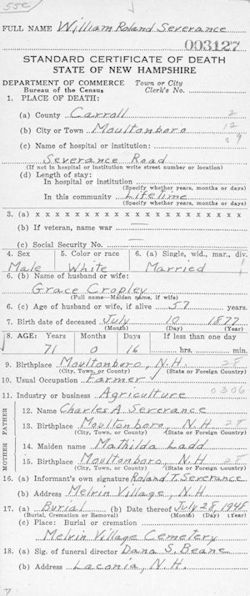 55C
FULL NAME William Roland Severance
003127
STANDARD CERTIFICATE OF DEATH
STATE OF NEW HAMPSHIRE
DEPARTMENT OF COMMERCE Town or City
Bureau of the Census Clerk's No.
1. PLACE OF DEATH:
(a) County Carroll 2
(b) City or Town Moultonboro 12
(c) Name of hospital or institution: 9
Severance Road
(If not in hospital or institution write street number or location)
(d) Length of stay:
In hospital or institution
(Specify whether years, months or days)
In this community Lifetime
(Specify whether years, months or days)
3. (a) x x x x x x x x x x x x x x x x x x x x
(b) If veteran, name war —
(c) Social Security No. —
4. Sex 5. Color or race 6. (a) Single, wid., mar., div.
Male White Married 1
6. (b) Name of husband or wife:
Grace Cropley
(Full name—Maiden name, if wife)
6. (c) Age of husband or wife, if alive 57 years
7. Birth date of deceased July 10 1877
(Month) (Day) (Year)
8. AGE: Years Months Days If less than one day
71 0 16 hrs. min.
9. Birthplace Moultonboro, N.H. 28
(City, Town, or County) (State or Foreign Country)
10. Usual Occupation Farmer
11. Industry or business Agriculture 0306
FATHER
12. Name Charles A. Severance
13. Birthplace Moultonboro, N.H. 28
(City, Town, or County) (State or Foreign Country)
MOTHER
14. Maiden name Mathilda Ladd
15. Birthplace Moultonboro, N.H. 28
(City, Town, or County) (State or Foreign Country)
16. (a) Informant's own signature Roland T. Severance
(b) Address Melvin Village, N.H.
17. (a) Burial (b) Date thereof July 28, 1948
(Burial, Cremation or Removal) (Month) (Day) (Year)
(c) Place: Burial or cremation
Melvin Village Cemetery
18. (a) Sig. of funeral director Dana S. Beane
(b) Address Laconia, N.H.